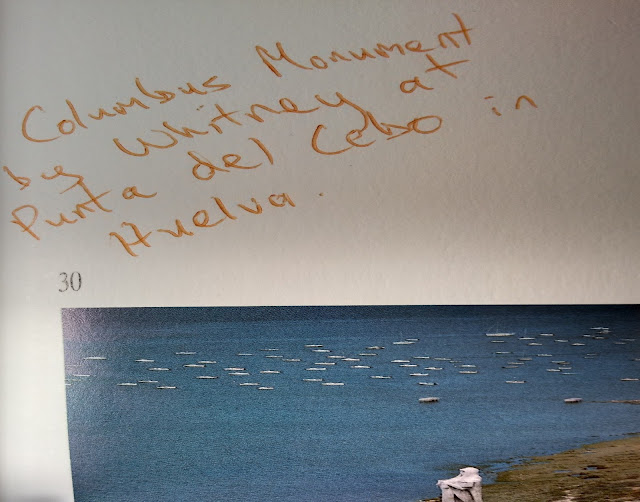 Columbus Monument
by Whitney at
Punta del Cebo in
Huelva.
30